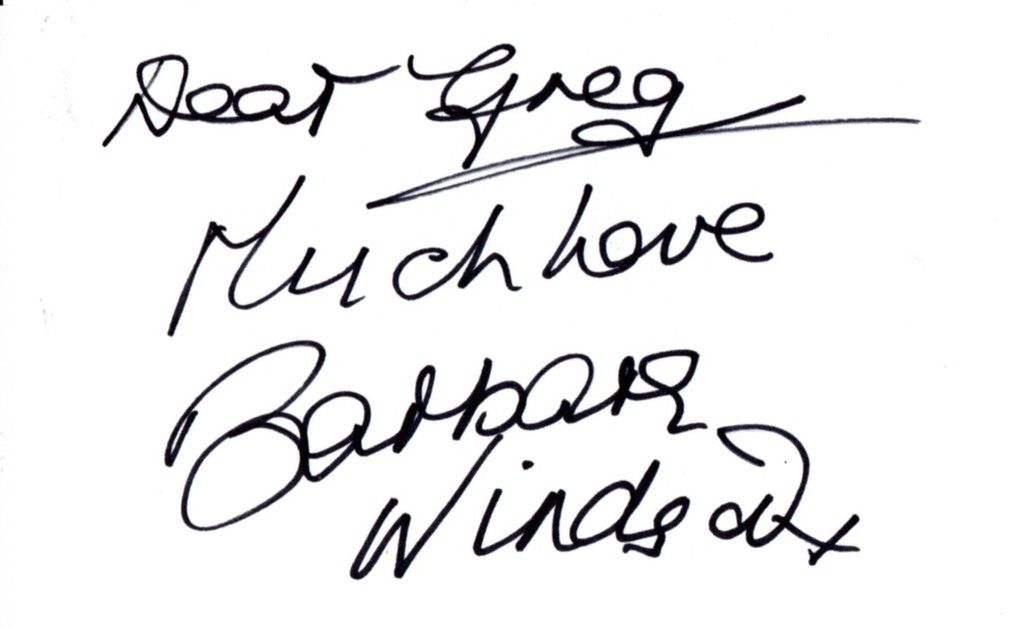 Dear Greg
Much Love
Barbara
Windsor x